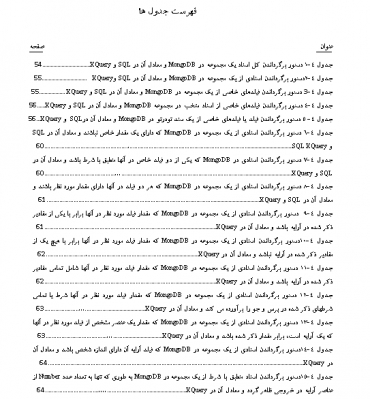 فهرست جدول ها
عنوان صفحه
جدول ۴-۱ دستور برگرداندن کل اسناد یک مجموعه در MongoDB و معادل آن در SQL و XQuery 54
جدول ۴-۲ دستور برگرداندن اسنادی از یک مجموعه در MongoDB و معادل آن در SQL و XQuery 55
جدول ۴-۳ دستور برگرداندن فیلدهای خاصی از اسناد یک مجموعه در MongoDB و معادل آن در SQL و XQuery 55
جدول ۴-۴ دستور برگرداندن فیلدهای خاصی از اسناد منتخب در مجموعه MongoDB و معادل آن در SQL و XQuery 56
جدول ۴-۵ دستور برگرداندن فیلد یا فیلدهای خاصی از یک سند تودرتو در MongoDB و معادل آن در SQL و XQuery 56
جدول ۴-۶ دستور برگرداندن اسنادی از یک مجموعه در MongoDB که دارای یک مقدار خاص نباشند و معادل آن در SQL
و SQL XQuery 60
جدول ۴-۷ دستور برگرداندن اسنادی از یک مجموعه در MongoDB که یکی از دو فیلد خاص در آنها منطبق با شرط باشد و معادل آن در
SQL و XQuery 60
جدول ۴-۸ دستور برگرداندن اسنادی از یک مجموعه در MongoDB که هر دو فیلد در آنها دارای مقدار مورد نظر باشند و
معادل آن در SQL و XQuery 61
جدول ۴-۹ دستور برگرداندن اسنادی از یک مجموعه در MongoDB که مقدار فیلد مورد نظر در آنها برابر با یکی از مقادیر
ذکر شده در آرایه باشد و معادل آن در XQuery 61
جدول ۴-۱۰ دستور برگرداندن اسنادی از یک مجموعه در MongoDB که مقدار فیلد مورد نظر در آنها برابر با هیچ یک از
مقادیر ذکر شده در آرایه نباشد و معادل آن در XQuery 62
جدول ۴-۱۱ دستور برگرداندن اسنادی از یک مجموعه در MongoDB که مقدار فیلد مورد نظر در آنها شامل تمامی مقادیر
ذکر شده در آرایه باشد و معادل آن در XQuery 62
جدول ۴-۱۲ دستور برگرداندن اسنادی از یک مجموعه در MongoDB که مقدار فیلد مورد نظر در آنها شرط یا تمامی
شرطهای ذکر شده در پرس و جو را برآورده می کند و معادل آن در XQuery 63
جدول ۴-۱۳ دستور برگرداندن اسنادی از یک مجموعه در MongoDB که مقدار یک عنصر مشخص از فیلد مورد نظر در آنها
که یک آرایه است، برابر مقدار ذکر شده باشد و معادل آن در XQuery 63
جدول ۴-۱۴ دستور برگرداندن اسنادی از یک مجموعه در MongoDB که فیلد آرایه آن دارای اندازه مشخص باشد و معادل آن
در XQuery 64
جدول ۴-۱۵ دستور برگرداندن اسناد منطبق با شرط از یک مجموعه در MongoDB به طوری که تنها به تعداد عدد Number از
عناصر آرایه در خروجی ظاهر گردد و معادل آن در XQuery 64